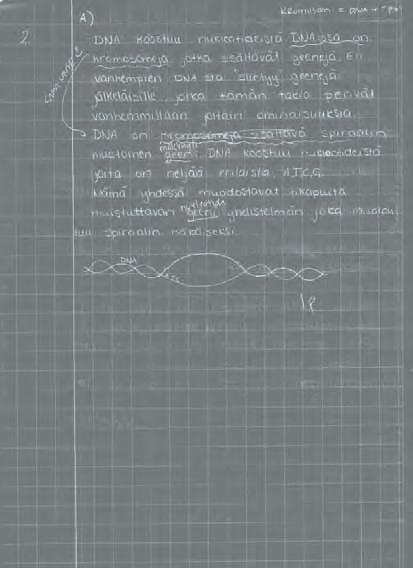 kromosomi = DNA +
A)
2.
DNA koostuu nukleotideistä DNA:ssa on
kromosomeja, jotka sisältävät geenejä. Eli
vanhempien DNA:sta "siirtyy" geenejä
jälkeläisille, jotka tämän takia perivät
vanhemmiltaan joitain ominaisuuksia.
DNA on kromosomeja sisältävä spiraalin
molekyyli
muotoinen geeni. DNA koostuu nukleotideistä
joita on neljää erilaista, A,T,C,G.
Nämä yhdessä muodostavat tikapuita
muistuttavan geeni yhdistelmän joka
tuu spiraalin näköiseksi.
DNA
1p